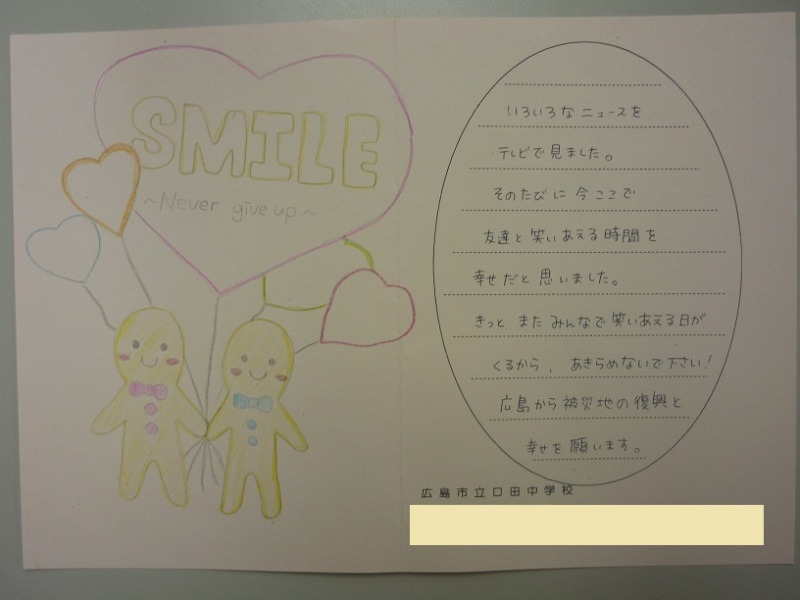 SMILE
~Never give up~
いろいろなニュースを
テレビで見ました。
そのたびに今ここで
友達と笑いあえる時間を
幸せだと思いました。
きっとまたみんなで笑いあえる日が
くるから、あきらめないで下さい!
広島から被災地の復興と
幸せを願います。
広島市立口田中学校